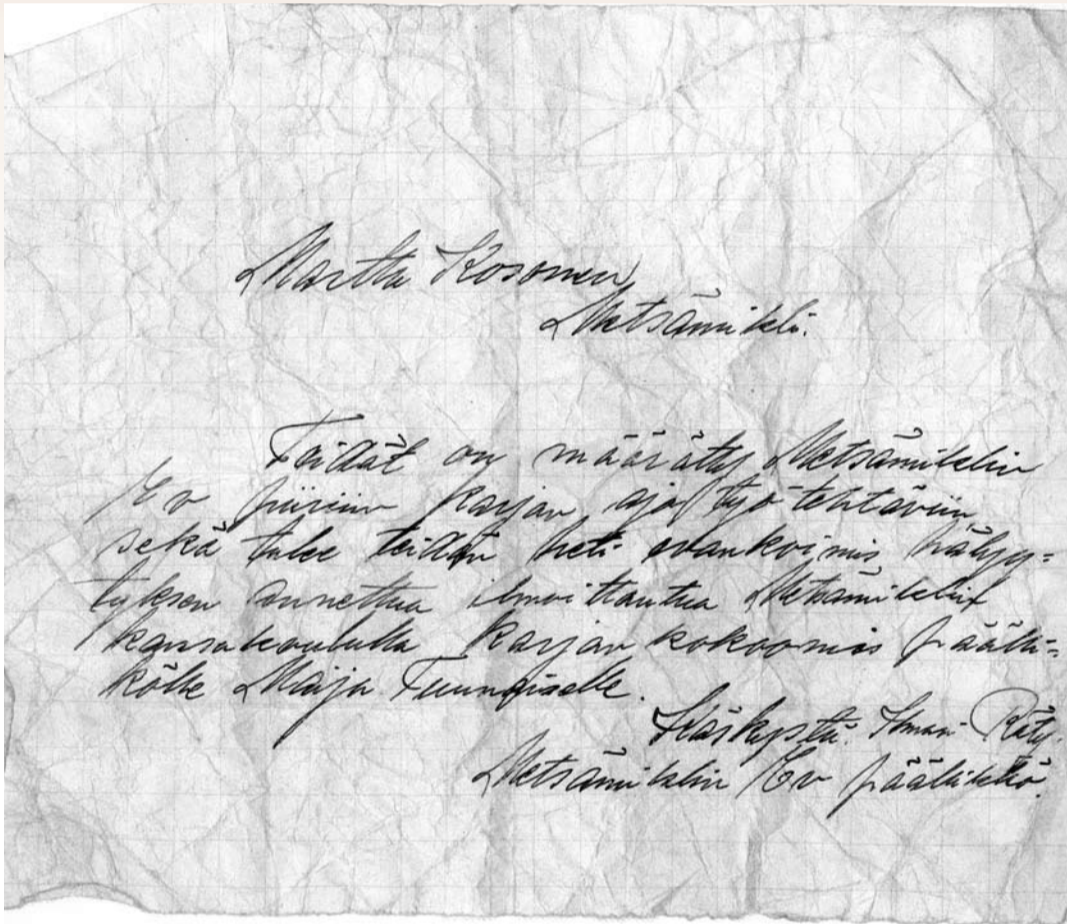 Martta Kosonen
Metsämikli.
Teidät on määrätty Metsämiklin
Ev piiriin karjan ajo työ tehtäviin,
sekä tulee teidän heti evankoimis hälyy=
tyksen annettua ilmoittautua Metsämiklin
kansakoululla karjan kokoomis pääli=
kölle Maija Tuunaiselle.
Käskystä: Ilmari Räty.
Metsämiklin Ev päälikkö.